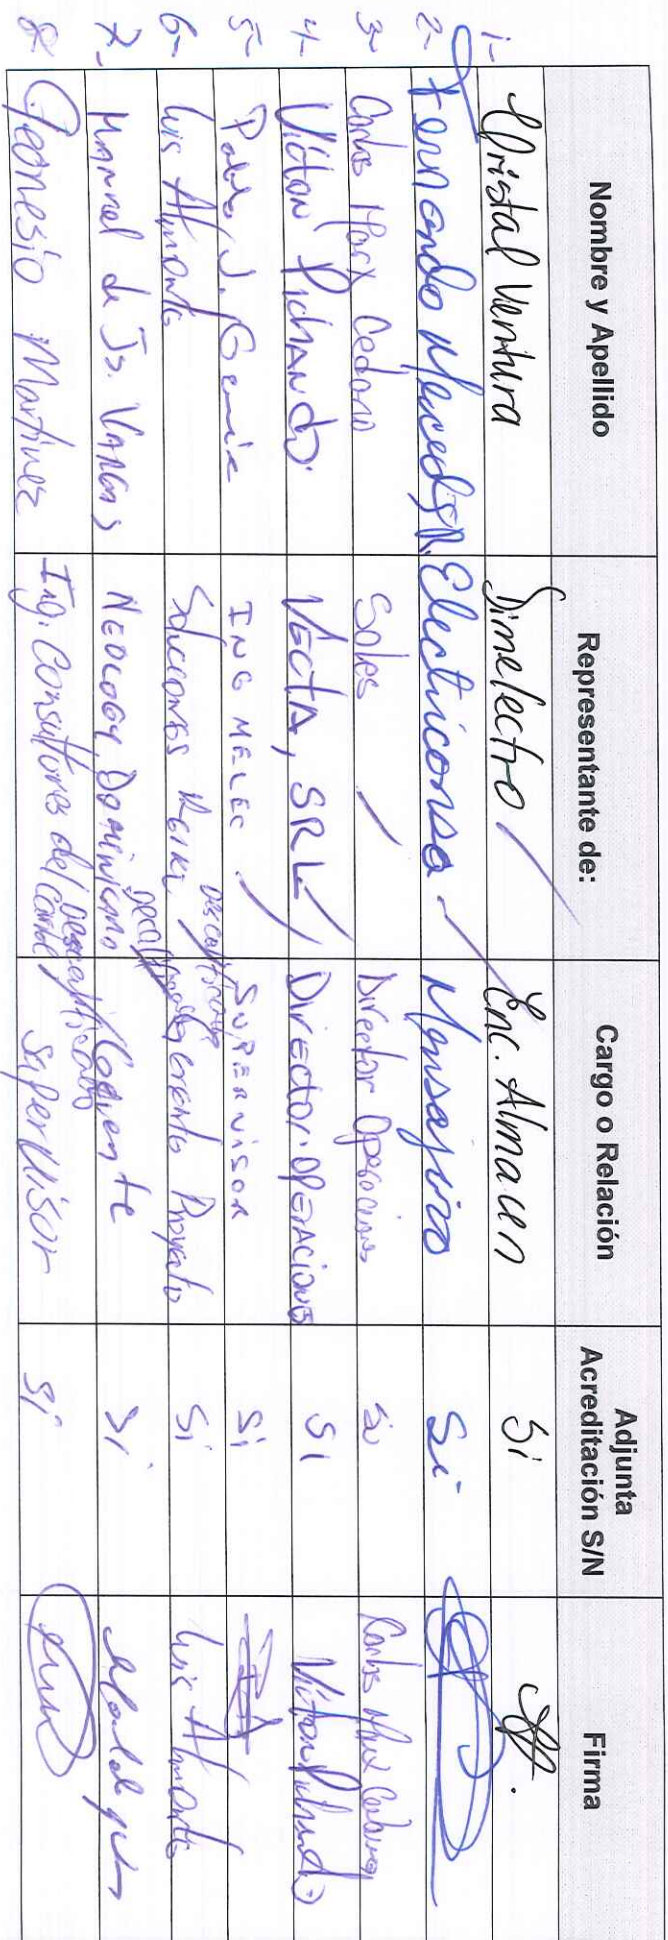 Nombre y Apellido Representante de: Cargo o Relación Adjunta Acreditación S/N Firma
1- Cristal Ventura Dimelectro Enc. Almacen Si
2- Fernando Mercedes R. Electriconsa Mensajero Si
3- Carlos Marx Cedano Soles Director Operaciones Si Carlos Marx Cedano
4- Víctor Pichardo. VECTA, SRL Director Operaciones SI Víctor Pichardo
5- Pablo J. INGMELEC SUPERVISOR Si
6- Luis Almonte Soluciones Descalificado Gerente Proyecto Si Luis Almonte
7- Manuel de Js. Vargas NEOLOGY Dominicano Gerente Si
8- Geonesio Martinez Ing. Consultores del Conde Descalificado Supervisor Si